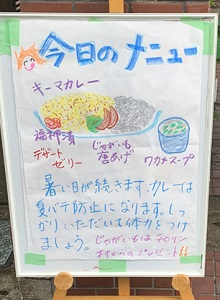 今日のメニュー
キーマカレー
福神漬
じゃがいも
唐あげ
デザート
ゼリー
ワカメスープ
暑い日が続きます。カレーは
夏バテ防止になります。しっ
かりいただいて体力をつけ
ましょう。じゃがいもは
プレゼント